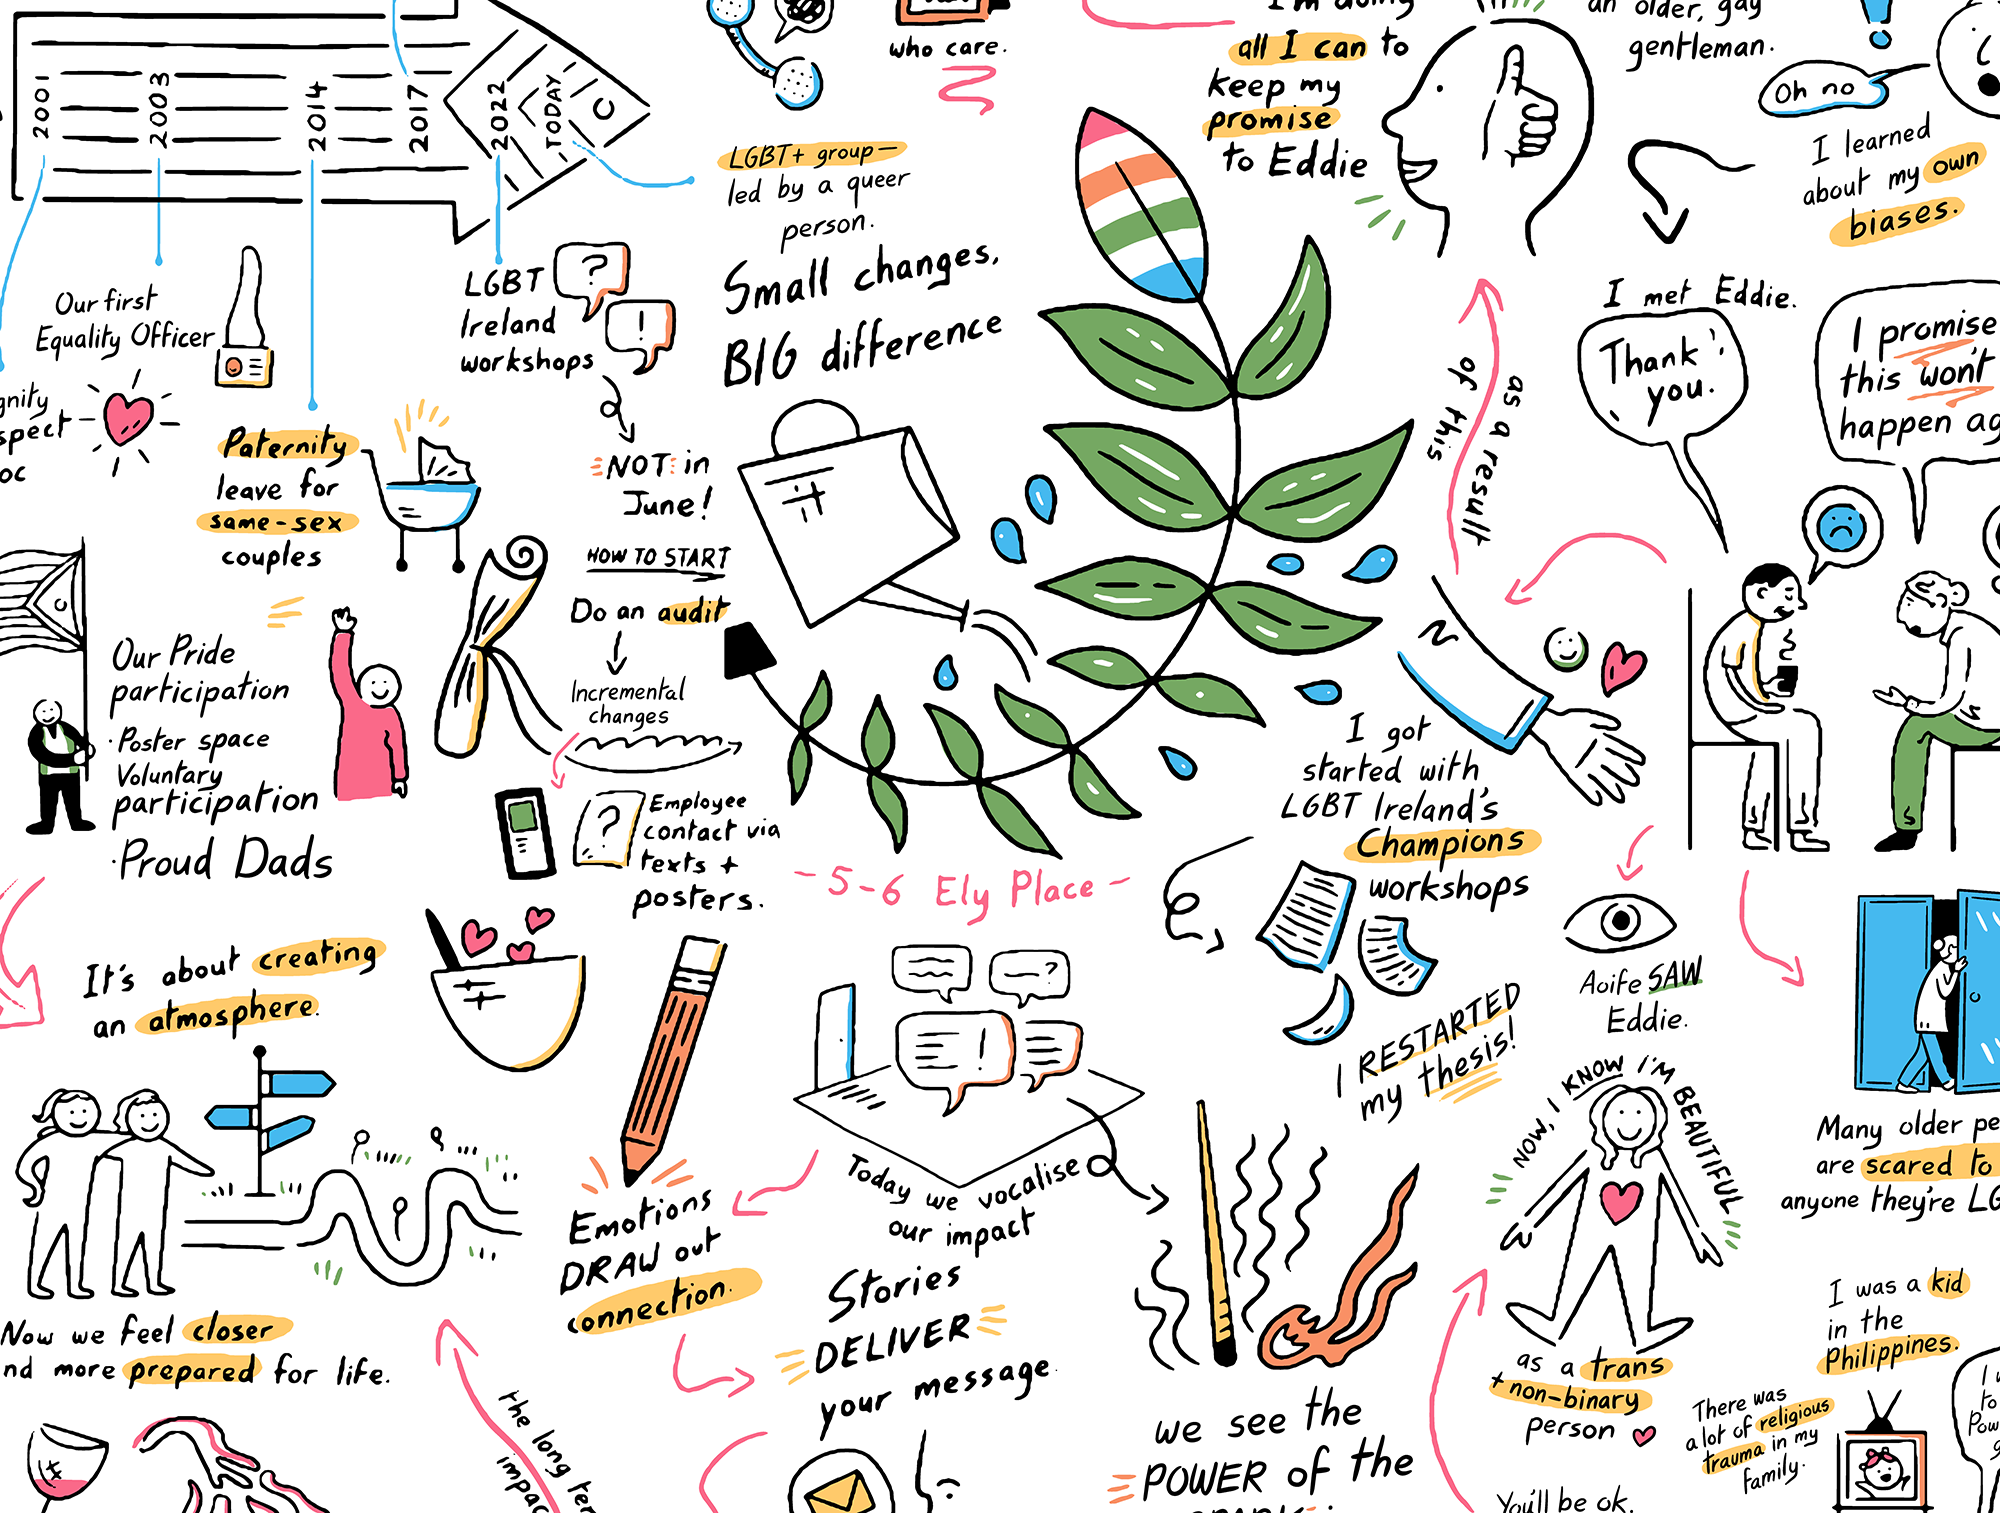 2001
2003
2014
2017
2022
TODAY
Our first
Equality Officer
Paternity
leave for
same-sex
couples
LGBT
Ireland
workshops
?
!
NOT in
June!
HOW TO START
Do an audit
Incremental
changes
?
Employee
contact via
texts +
posters.
Our Pride
participation
· Poster space
Voluntary
participation
· Proud Dads
It's about creating
an atmosphere.
Now we feel closer
more prepared for life.
The long
who care.
LGBT+ group —
led by a queer
person.
Small changes,
BIG difference
- 5-6 Ely Place -
?
!
Today we vocalise
our impact
Emotions
DRAW out
connection.
Stories
DELIVER
your message.
we see the
POWER of the
I'm doing
all I can to
keep my
promise
to Eddie
an older, gay
gentleman.
Oh no
I learned
about my own
biases.
I met Eddie.
Thank
you.
I promise
this won't
happen
as a result
of this
I got
started with
LGBT Ireland's
Champions
workshops
I RESTARTED
my thesis!
Aoife SAW
Eddie.
Many older
are scared to
anyone they're
NOW, I KNOW I'M BEAUTIFUL
as a trans
+ non-binary
person
I was a kid
in the
Philippines.
There was
a lot of religious
trauma in my
family.
You'll be ok.